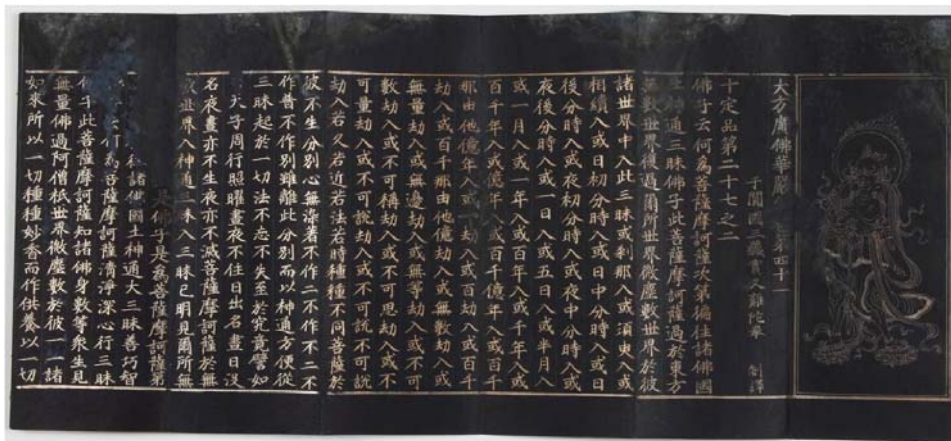 大方廣佛華嚴 第四十一
于闐國三藏實叉難陀奉 制譯
十定品第二十七之二
佛子云何為菩薩摩訶薩次第徧往諸佛國
土神通三昧佛子此菩薩摩訶薩過於東方
無數世界復過爾所世界微塵數世界於彼
諸世界中入此三昧或剎那入或須臾入或
相續入或日初分時入或日中分時入或日
後分時入或夜初分時入或夜中分時入或
夜後分時入或一日入或五日入或半月入
或一月入或一年入或百年入或千年入或
百千年入或億年入或百千億年入或百千
那由他億年入或一劫入或百劫入或百千
劫入或百千那由他億劫入或無數劫入或
無量劫入或無邊劫入或無等劫入或不可
數劫入或不可稱劫入或不可思劫入或不
可量劫入或不可說劫入或不可說不可說
劫入若久若近若法若時種種不同菩薩於
彼不生分別心無染著不作二不作不二不
作普不作別雖離此分別而以神通方便從
三昧起於一切法不忘不失至於究竟譬如
天子周行照曜晝夜不住日出名晝日沒
名夜晝亦不生夜亦不滅菩薩摩訶薩於無
數世界入神通三昧入三昧已明見爾所無
佛子是為菩薩摩訶薩第
諸佛國土神通大三昧善巧智
何為菩薩摩訶薩清淨深心行三昧
佛子此菩薩摩訶薩知諸佛身數等眾生見
無量佛過阿僧祇世界微塵數於彼一一諸
如來所以一切種種妙香而作供養以一切